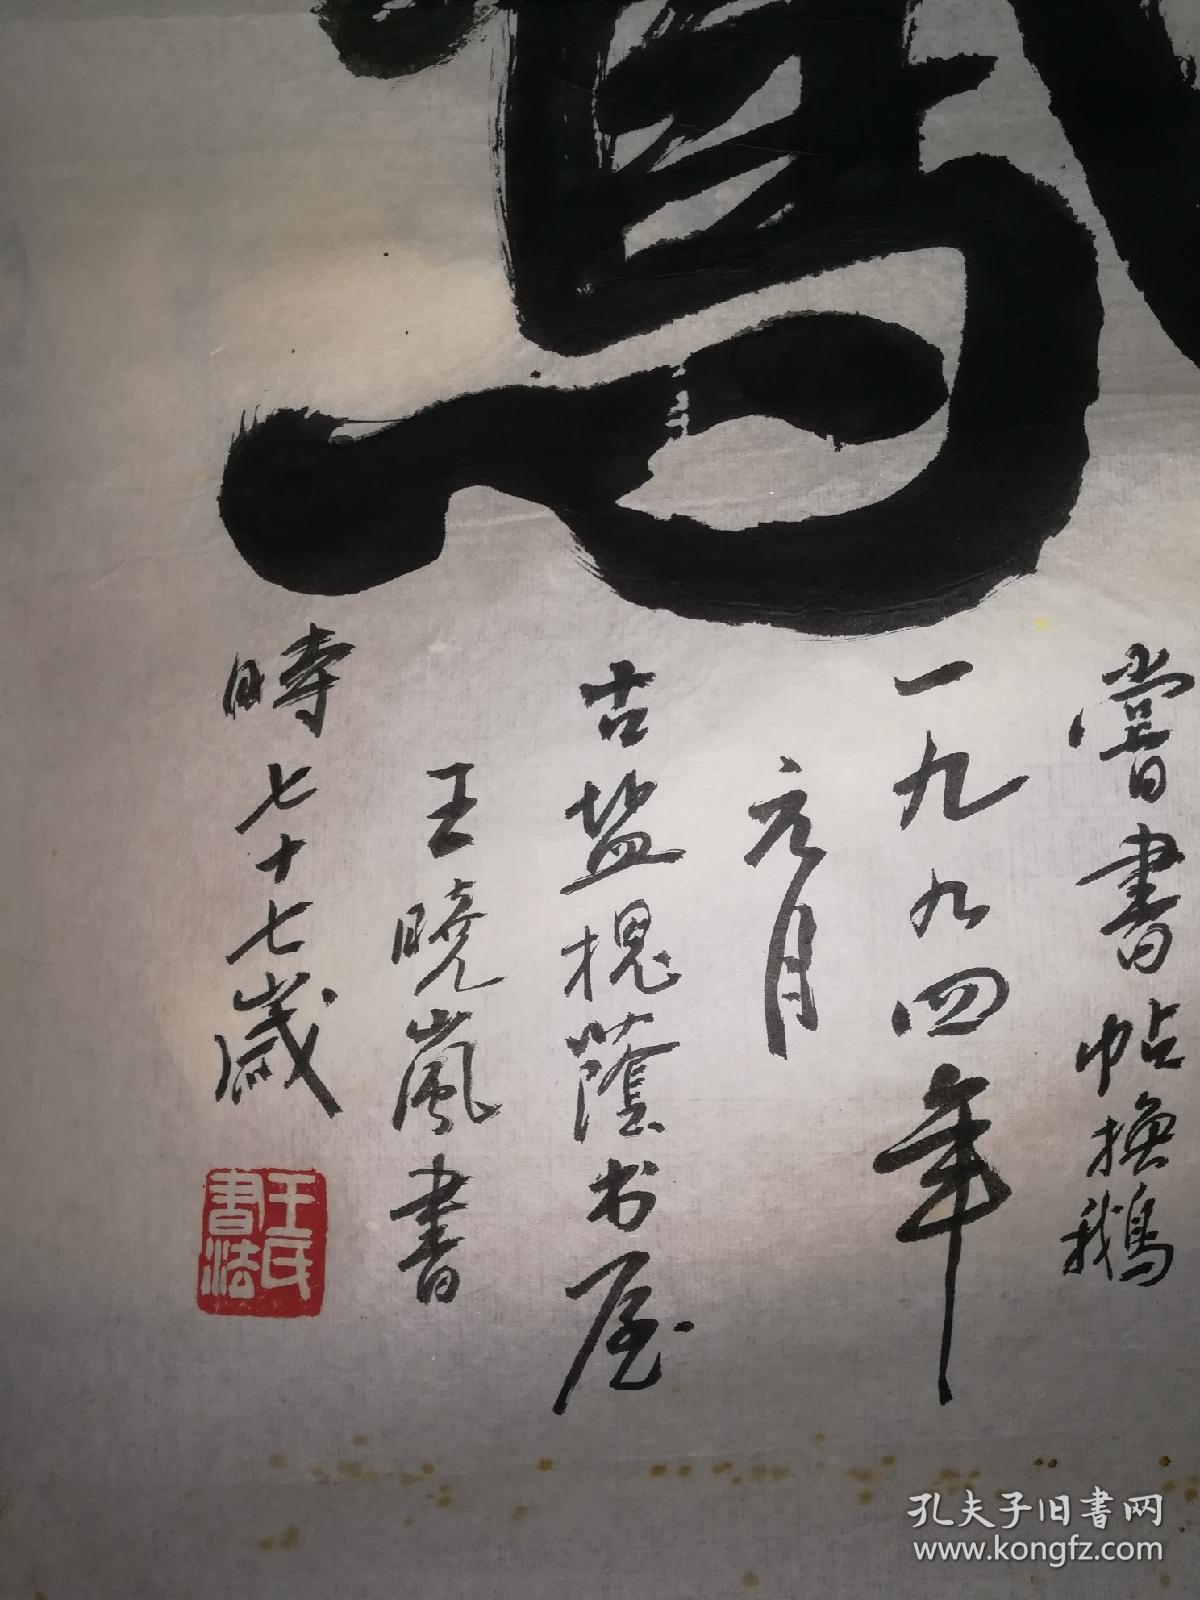 嘗書帖換鵝
一九九四年
元月
古盐槐蔭书屋
王曉嵐書
時七十七歲
王氏
書法
孔夫子旧书网
www.kongfz.com